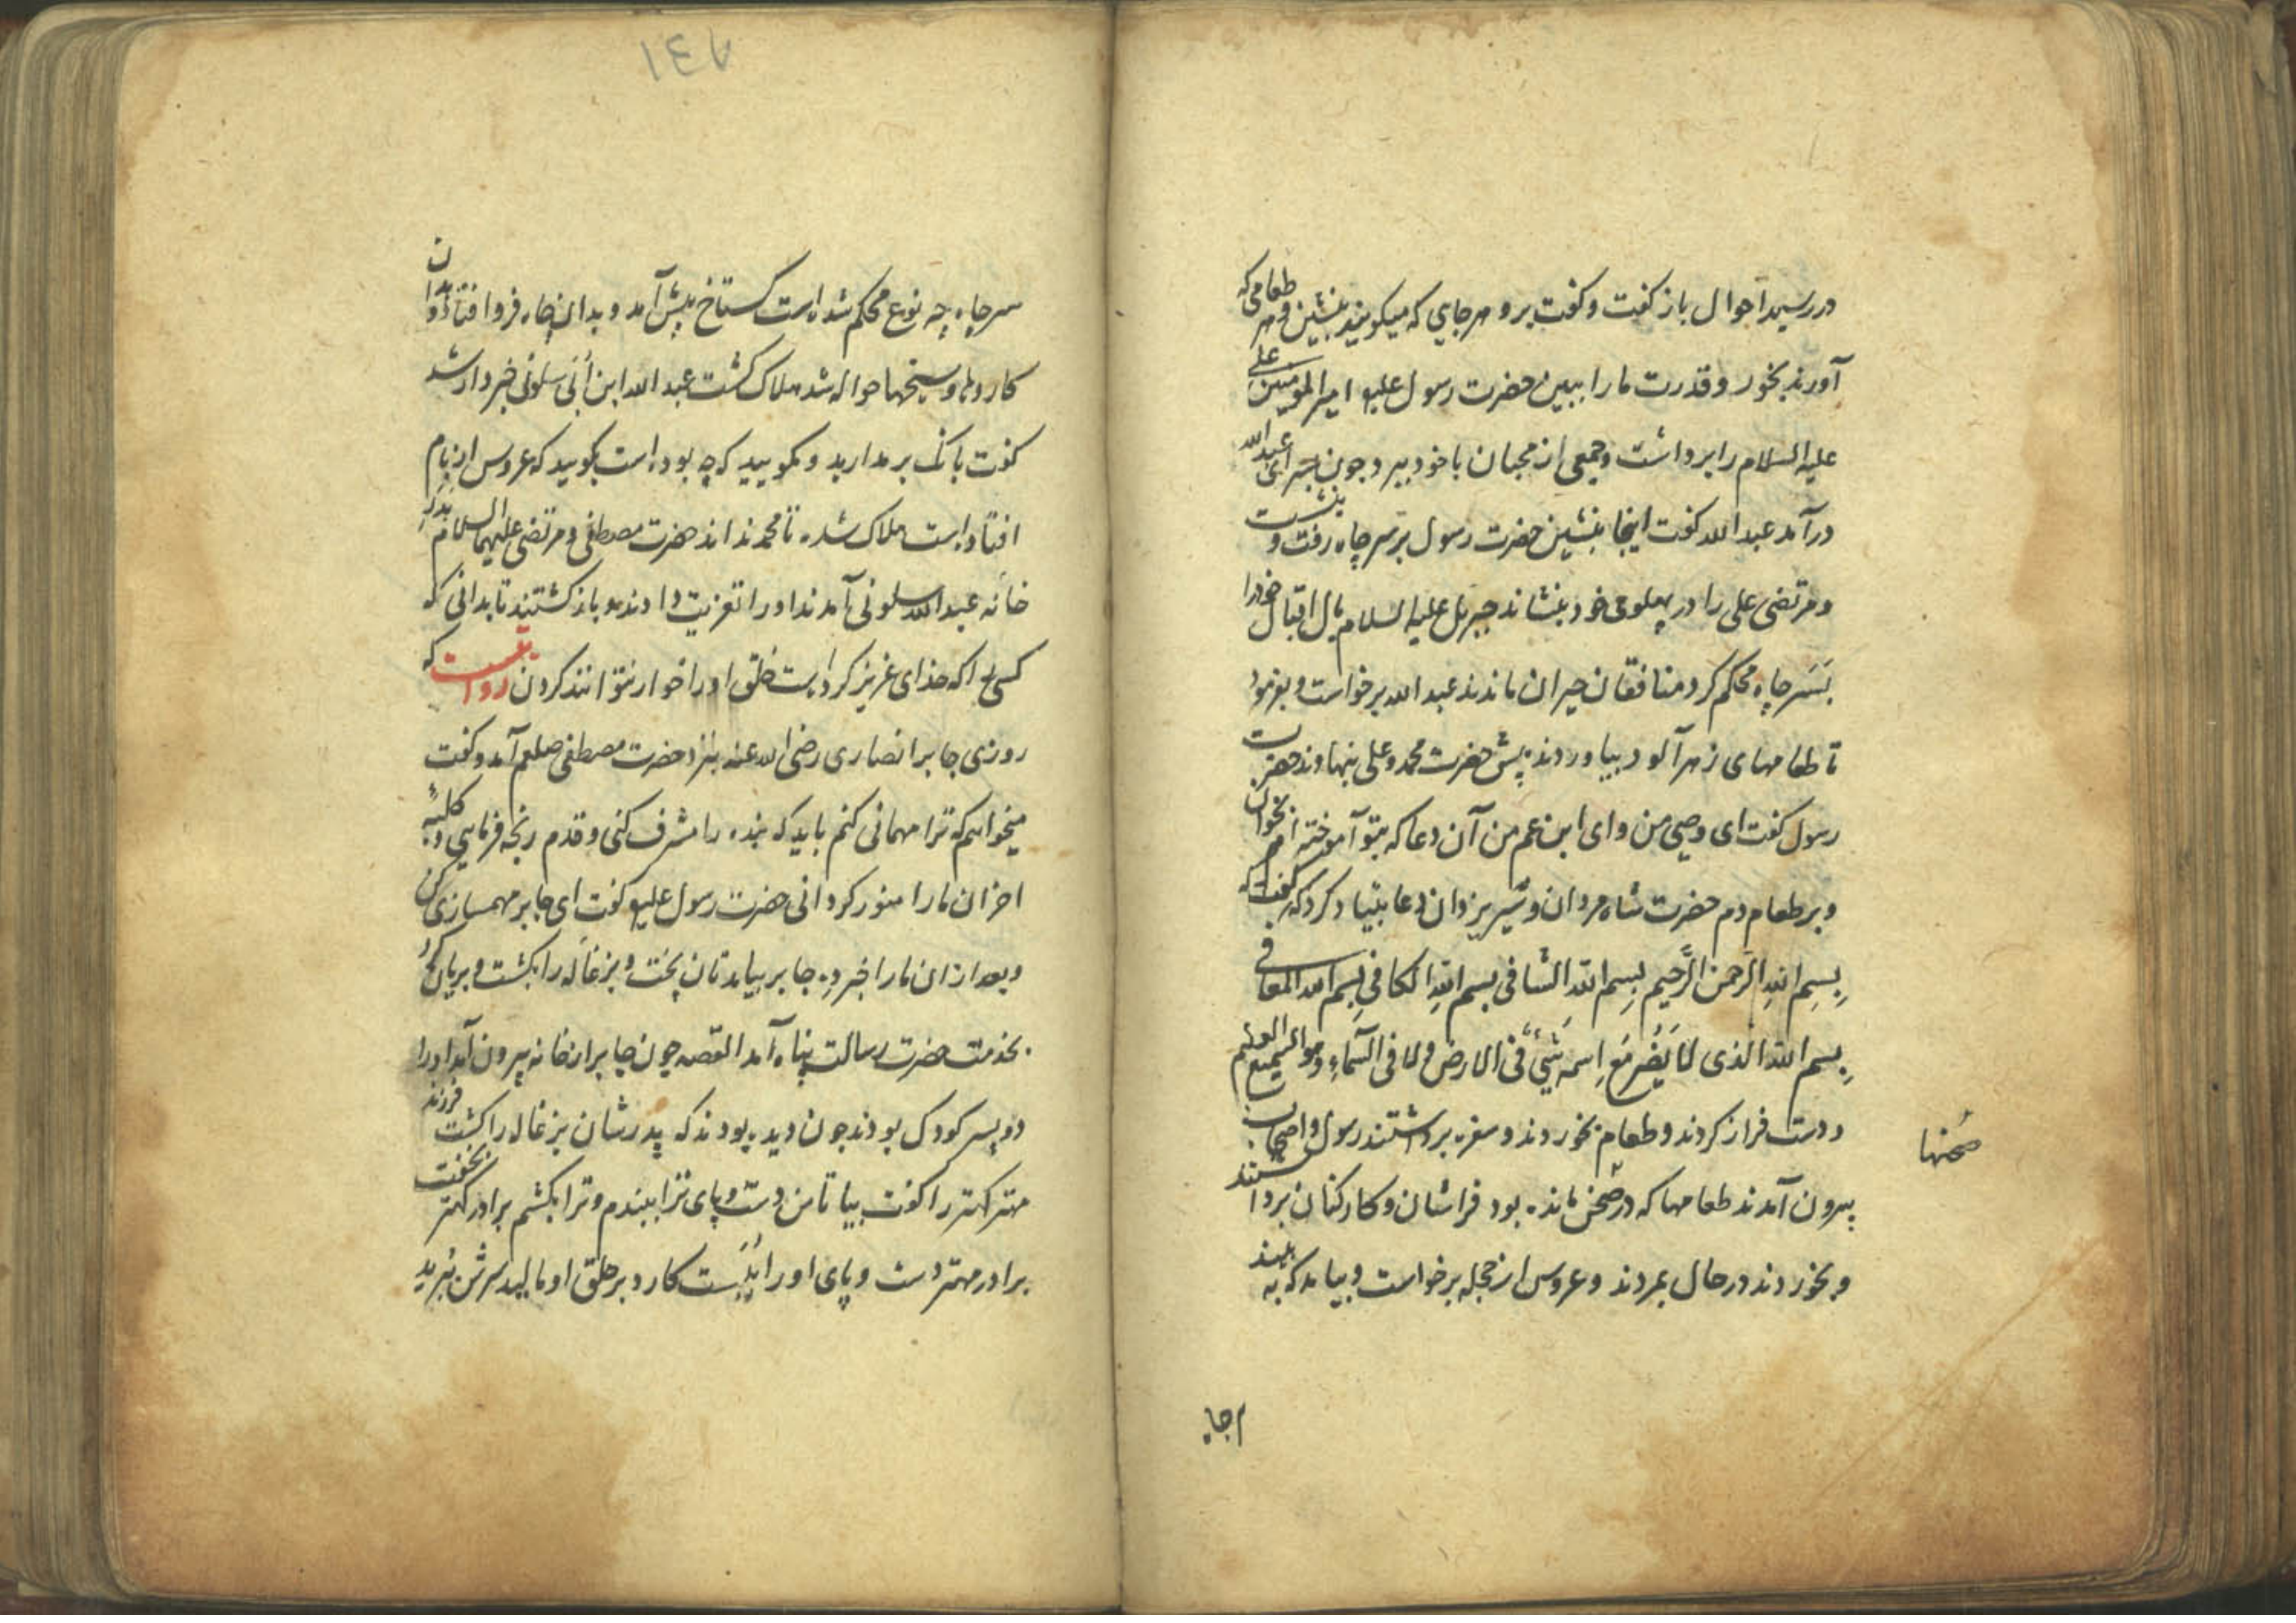 در رسید احوال باز گفت و گفت برو هر جایی که میکویند بنشین و هر طعامی که
آورند بخور و قدرت ما را ببین حضرت رسول علیه امیر المومنین علی
علیه السلام را برداشت و جمعی از محبان با خود ببرد چون بسرای عبد الله
درآمد عبد الله کفت اینجا بنشین حضرت رسول بر سر چاه رفت و بنشست
و مرتضی علی را در پهلوی خود بنشاند جبریل علیه السلام بال اقبال خود را
بسر چاه محکم کرد منافقان حیران ماندند عبد الله برخواست و بفرمود
تا طعامهای زهرآلود بیاوردند پیش حضرت محمد و علی بنهادند حضرت
رسول کفت ای وصی من و ای ابن عم من آن دعا که بتو آموخته ام بخوان
و بر طعام دم حضرت شاه مردان و شیر یزدان دعا بنیاد کرد که گفت که
بِسمِ اللهِ الرَحمن الرَّحیم بِسمِ الله الشافی بسم اللهِ الکافی بِسم الله المعافی
بِسم الله الذی لا یَضُر مَع اِسمه شَیئ فی الارض ولا فی السَّماءِ وهو السَمیع العلیم
و دست فراز کردند و طعام بخوردند و سفره برداشتند رسول و اصحاب
بیرون آمدند طعامها که در صحن مانده بود فراشان و کارکنان برداشتند
صحنها
و بخوردند در حال بمردند و عروس از حجله برخواست و بیامد که به بیند
چاه
١٤٧
سر چاه چه نوع محکم شده است کستاخ پیش آمد و بدان چاه فرو افتاد و بدان
کاردها و سیخها حواله شد هلاک کشت عبد الله ابن اُبَی سلونی خبردار شد
کفت بانک برمدارید و مکویید که چه بوده است بکویید که عروس از بام
افتاده است هلاک شده تا محمد نداند حضرت مصطفی و مرتضی علیهما السلام بدر
خانه عبد الله سلونی آمدند او را تعزیت دادند و باز کشتند تا بدانی که
کسی را که خدای عزیز کرده است خلق او را خوار نتوانند کردن روایتست که
روزی جابر انصاری رضی الله عنه بنزد حضرت مصطفی صلعم آمد و کفت
میخواهم که ترا مهمانی کنم باید که بنده را مشرف کنی و قدم رنجه فرمایی و کلبه
احزان ما را منور کردانی حضرت رسول علیه کفت ای جابر مهمسازی کن
و بعد از ان ما را خبر ده جابر بیامد نان پخت و بزغاله را بکشت و بریان کرد
بخدمت حضرت رسالت پناه آمد القصه چون جابر از خانه بیرون آمد او را
دو پسر کودک بودند چون دیده بودند که پدرشان بزغاله را کشت فرزند
مهتر کهتر را کفت بیا تا من دست و پای ترا ببندم و ترا بکشم برادر کهتر بخفت
برادر مهتر دست و پای او را ببست کارد بر حلق او مالید سرش ببرید